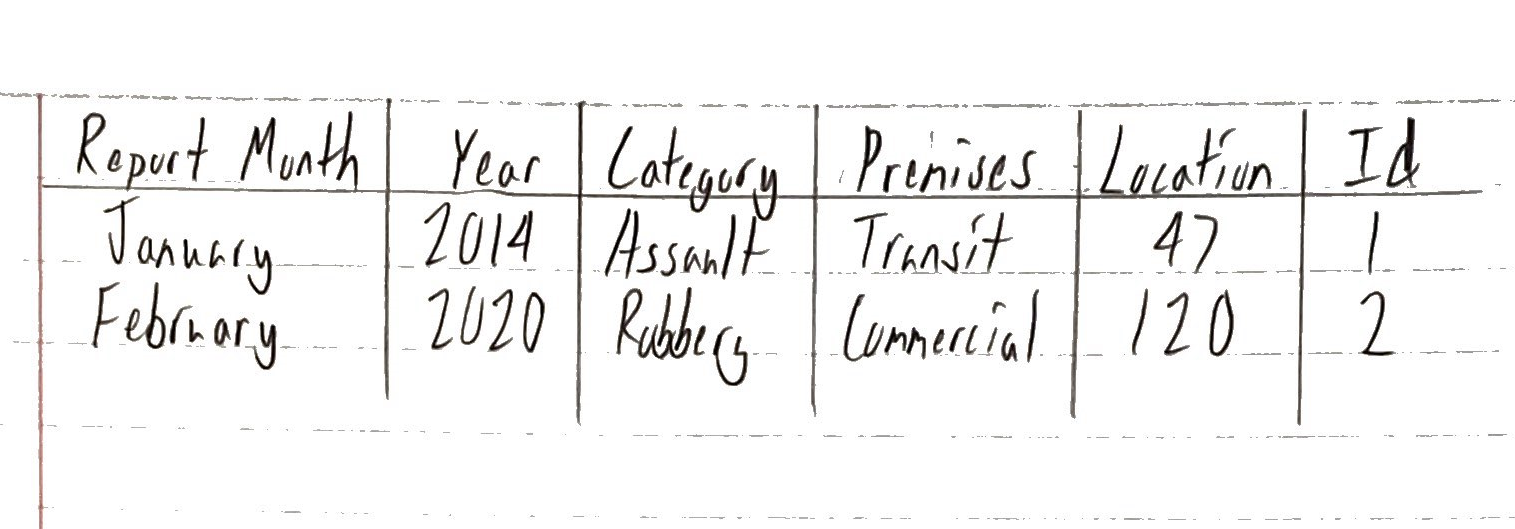 Report Month Year Category Premises Location Id
January 2014 Assault Transit 47 1
February 2020 Robbery Commercial 120 2